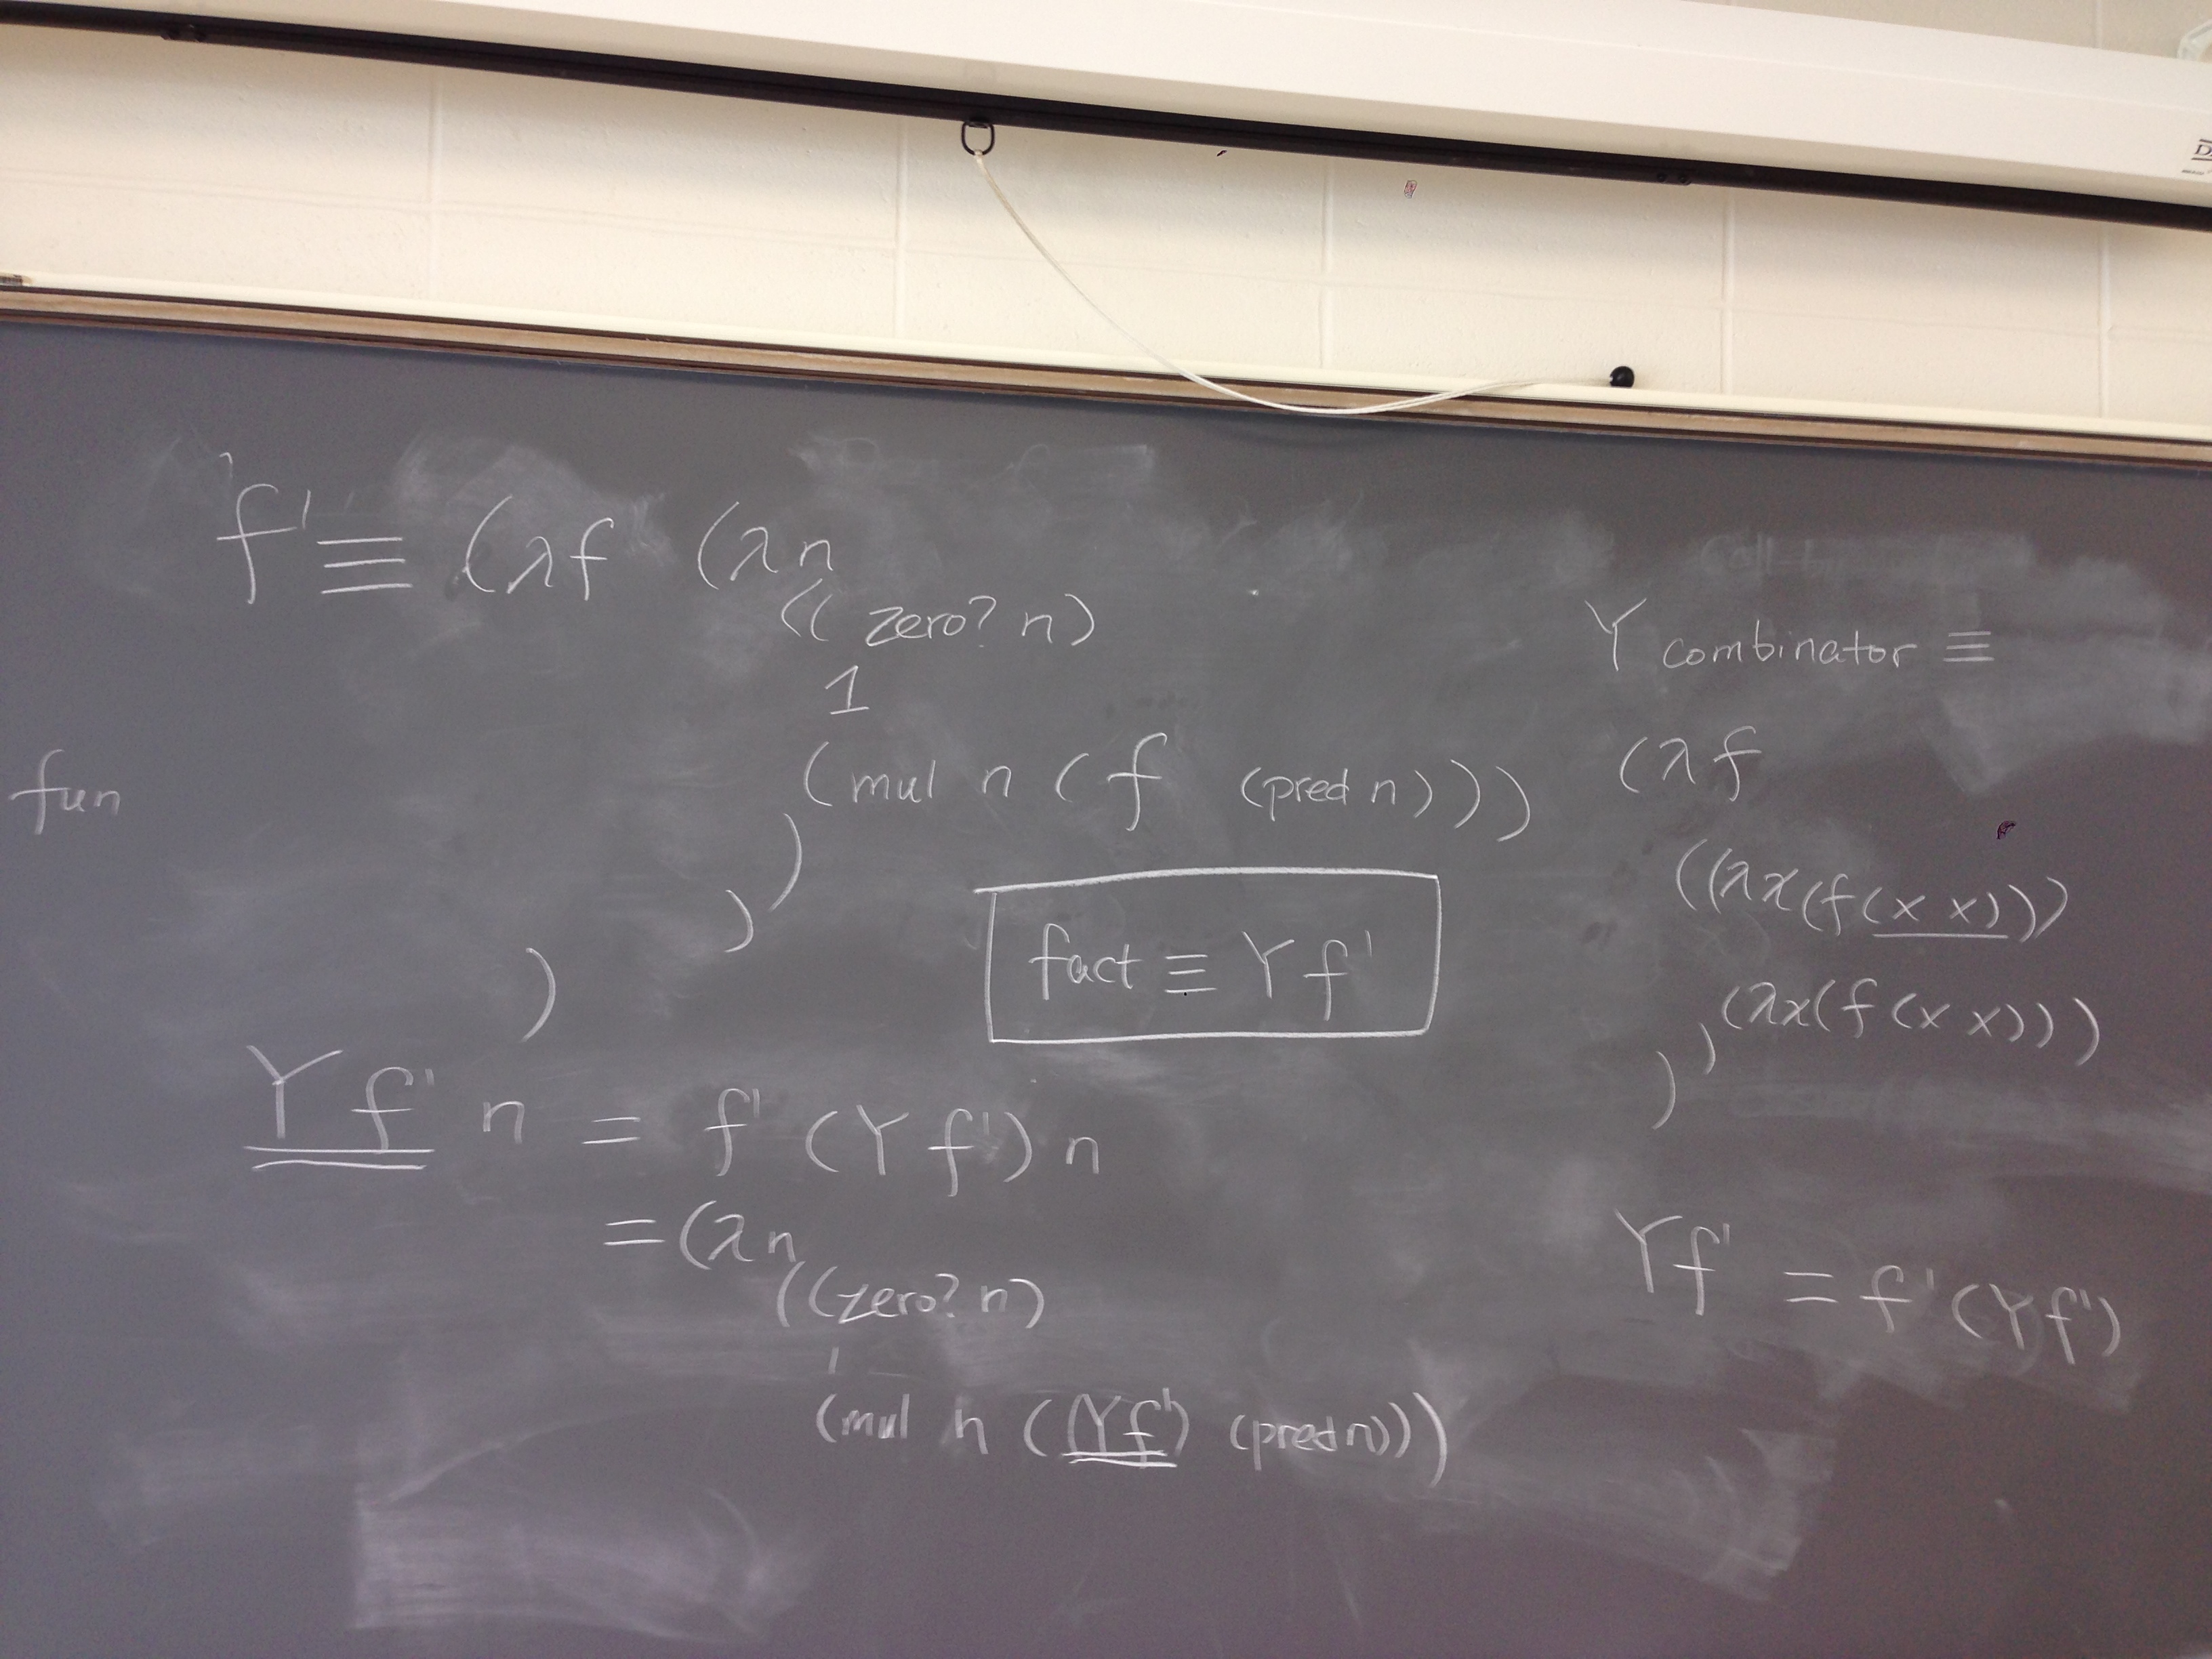 f' ≡ (λf (λn
((zero? n)
1
(mul n (f (pred n)))
)
)
)
fun
fact ≡ Y f'
Y f' n = f' (Y f') n
= (λn
((zero? n)
1
(mul n ((Yf') (pred n)))
Y combinator ≡
(λf
((λx(f(x x)))
(λx(f(x x)))
)
)
Yf' = f'(Yf')